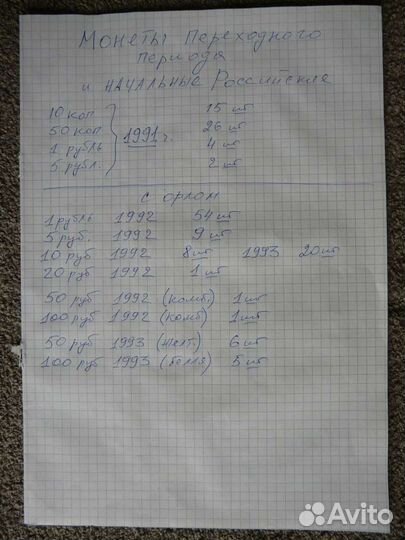 Монеты переходного
периода
и начальные Российские
10 коп 15 шт
50 коп 1991 г. 26 шт
1 рубль 4 шт
5 рубл. 2 шт
с орлом
1 рубль 1992 54 шт
5 руб. 1992 9 шт
10 руб 1992 8 шт 1993 20 шт
20 руб 1992 1 шт
50 руб 1992 (комб.) 1 шт
100 руб 1992 (комб) 1 шт
50 руб 1993 (желт.) 6 шт
100 руб 1993 (белая) 5 шт
Avito